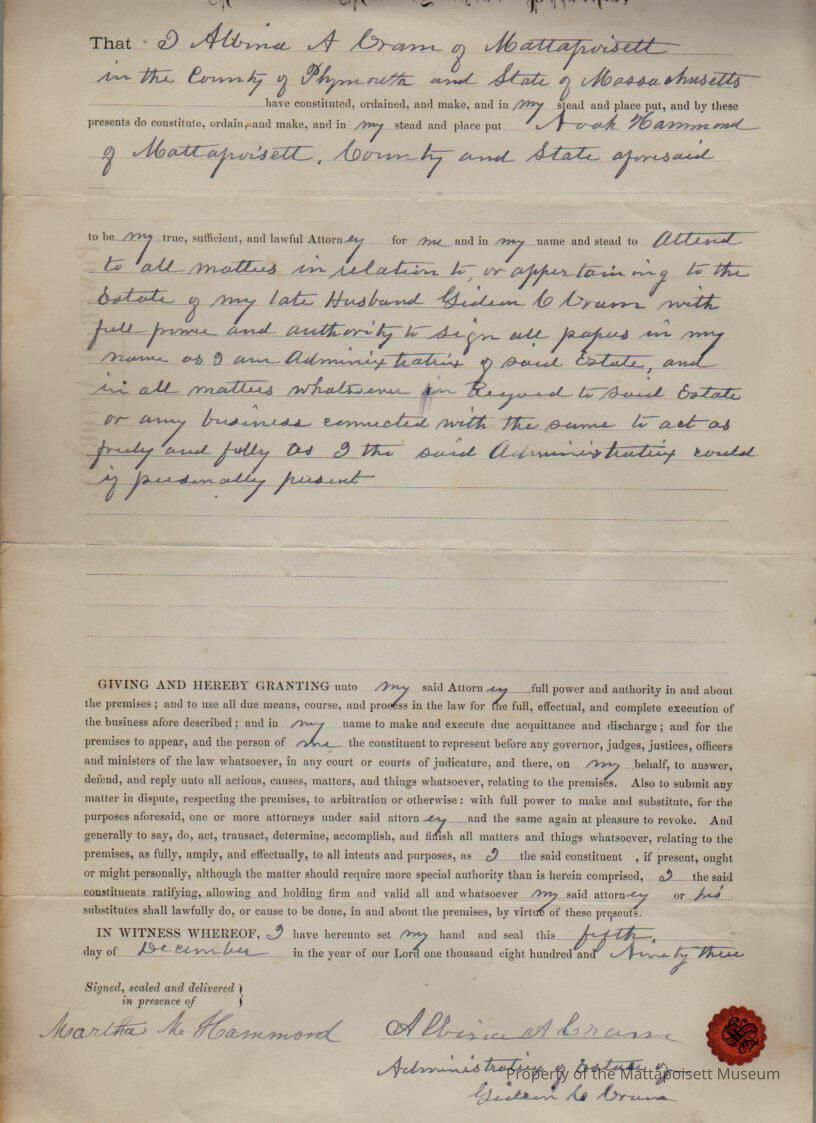 That I Albina A Cram of Mattapoisett
in the County of Plymouth and State of Massachusetts
have constituted, ordained, and make, and in my stead and place put, and by these
presents do constitute, ordain, and make, and in my stead and place put Noah Hammond
of Mattapoisett, County and State aforesaid
to be my true, sufficient, and lawful Attorney for me and in my name and stead to Attend
to all matters in relation to, or appertaining to the
Estate of my late Husband Gideon C Cram with
full power and authority to sign all papers in my
name as I am Administratrix of said Estate, and
in all matters whatsoever in Regard to said Estate
or any business connected with the same to act as
freely and fully as I the said Administratrix could
if personally present
GIVING AND HEREBY GRANTING unto my said Attorney full power and authority in and about
the premises; and to use all due means, course, and process in the law for the full, effectual, and complete execution of
the business afore described; and in my name to make and execute due acquittance and discharge; and for the
premises to appear, and the person of me the constituent to represent before any governor, judges, justices, officers
and ministers of the law whatsoever, in any court or courts of judicature, and there, on my behalf, to answer,
defend, and reply unto all actions, causes, matters, and things whatsoever, relating to the premises. Also to submit any
matter in dispute, respecting the premises, to arbitration or otherwise: with full power to make and substitute, for the
purposes aforesaid, one or more attorneys under said attorney and the same again at pleasure to revoke. And
generally to say, do, act, transact, determine, accomplish, and finish all matters and things whatsoever, relating to the
premises, as fully, amply, and effectually, to all intents and purposes, as I the said constituent , if present, ought
or might personally, although the matter should require more special authority than is herein comprised, I the said
constituents ratifying, allowing and holding firm and valid all and whatsoever my said attorney or his
substitutes shall lawfully do, or cause to be done, in and about the premises, by virtue of these presents.
IN WITNESS WHEREOF, I have hereunto set my hand and seal this fifth
day of December in the year of our Lord one thousand eight hundred and Ninety three
Signed, sealed and delivered }
in presence of
Martha M Hammond Albina A Cram
Administratrix of Estate of
Property of the Mattapoisett Museum
Gideon C Cram